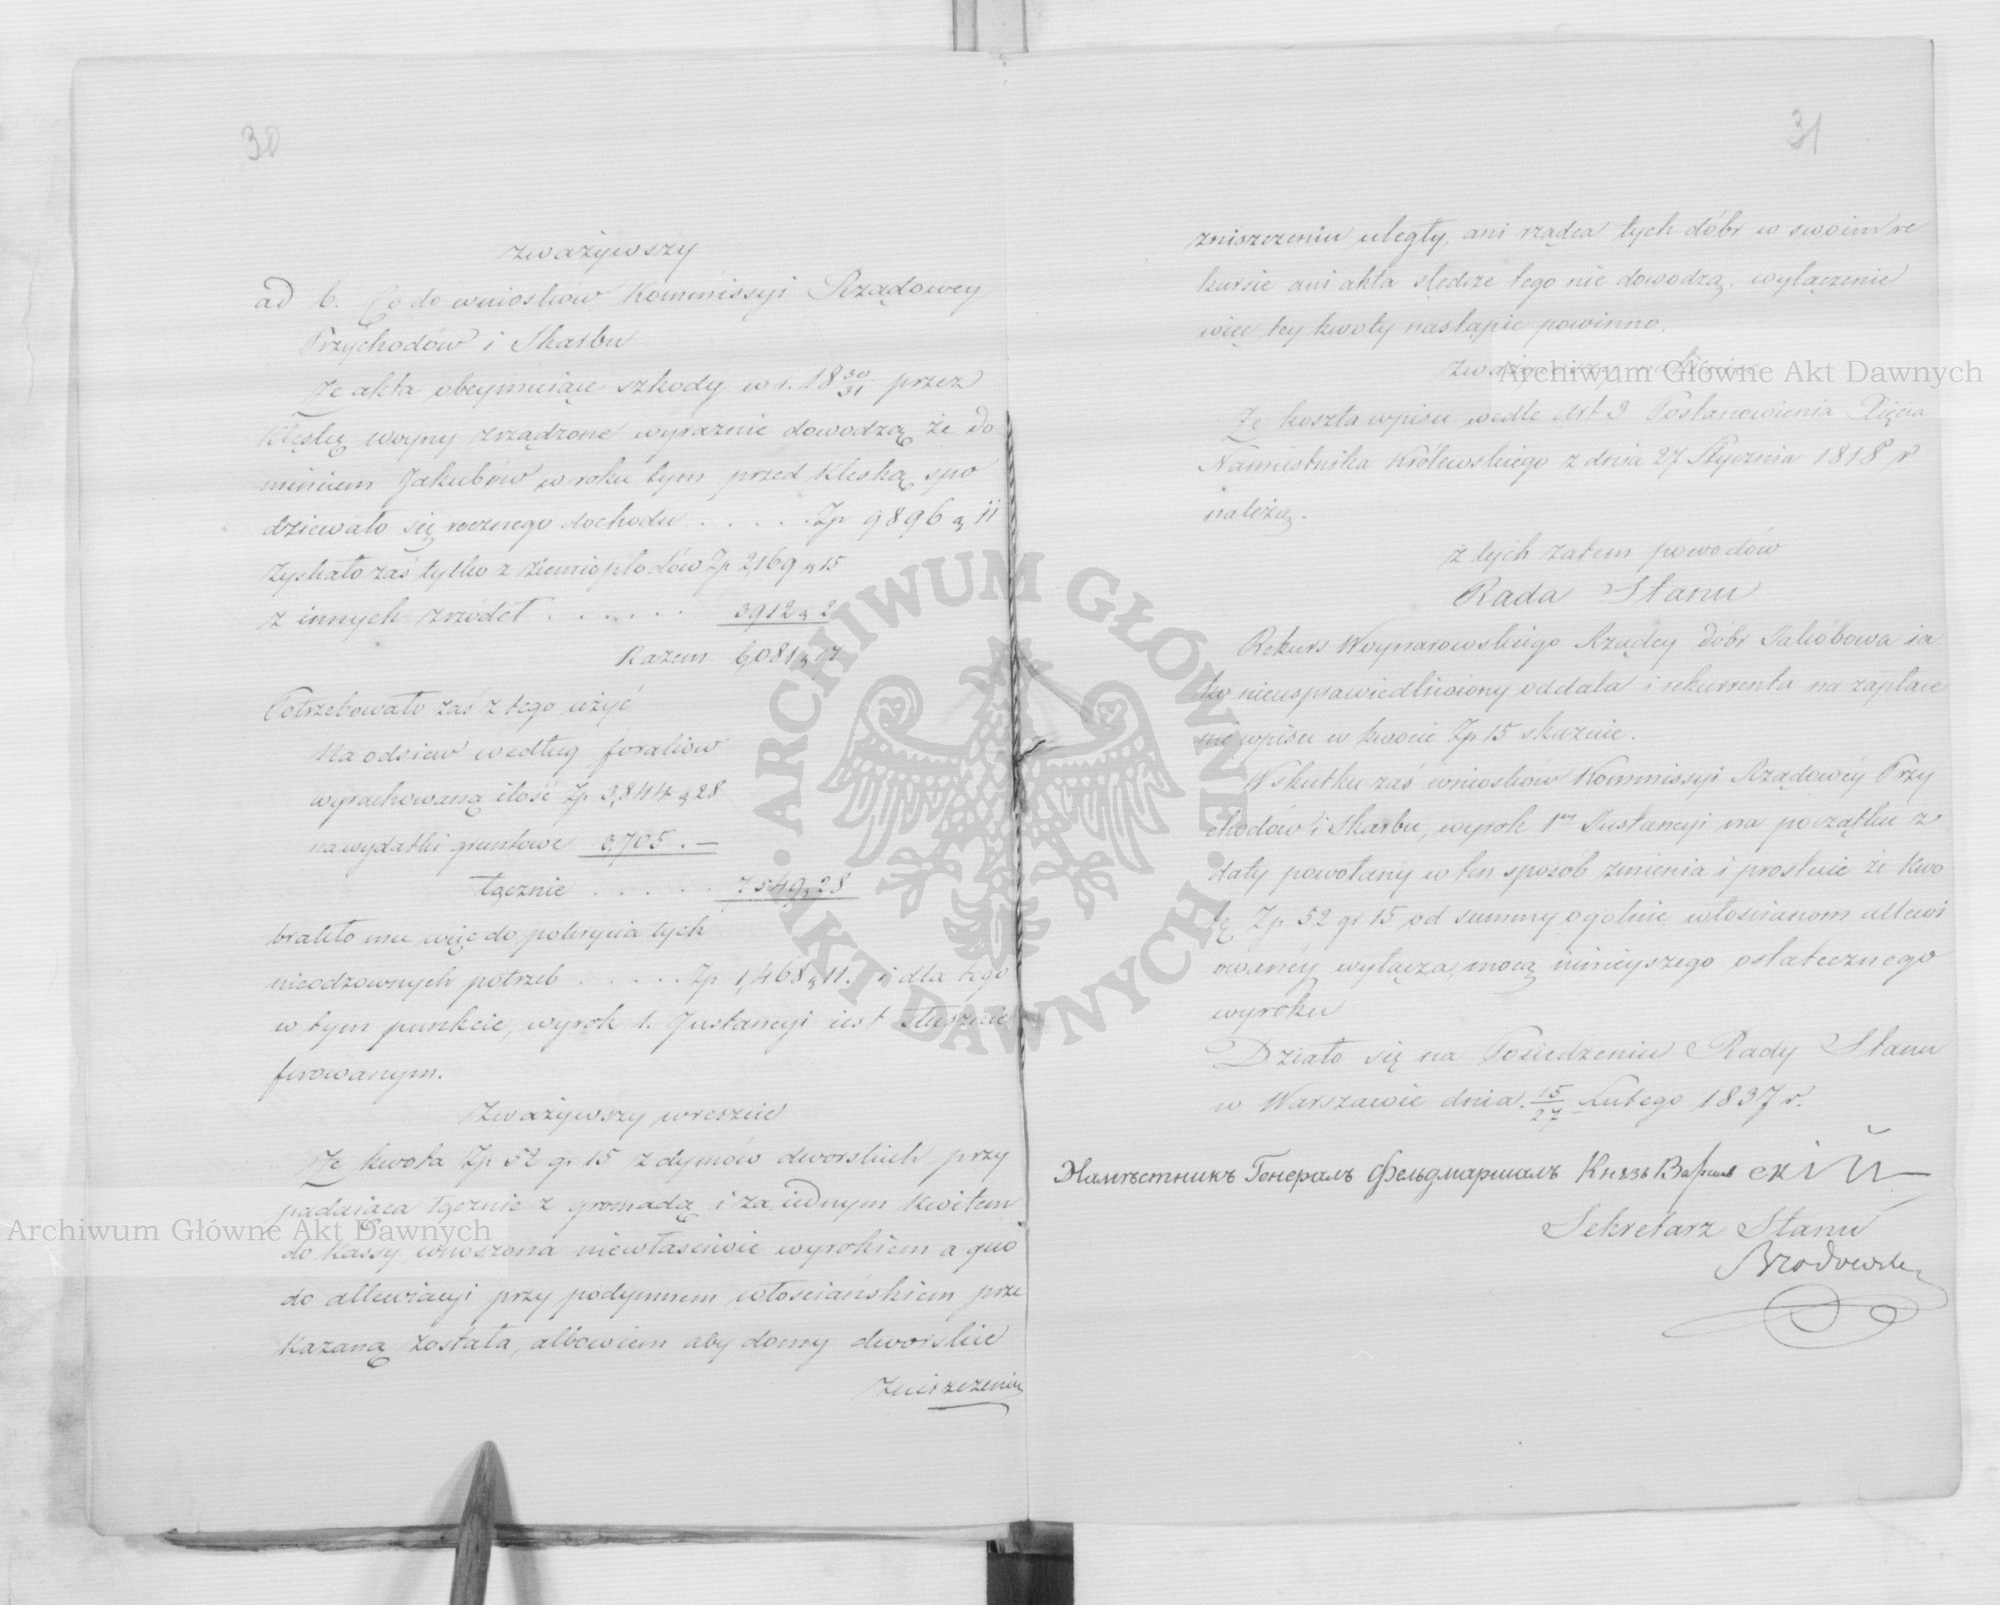 30
zważywszy
ad b. Co do wniosków Kommissyi Rządowey
Przychodów i Skarbu
Że akta obeymuiące szkody w r. 18 30/31 przez
klęskę woyny zrządzone wyraznie dowodzą że do
minium Jakubów w roku tym przed klęską spo
dziewało się rocznego dochodu . . . . . Zp 9896 g 11
zyskało zaś tylko z ziemiopłodów Zp 2,169 g 15
z innych zrzódeł . . . . . . 3912 g 2
Razem 6,081 g 17
Potrzebowało zaś z tego użyć
Na odsiew według foraliów
wyrachowaną ilość Zp 3,844 g 28
na wydatki gruntowe 3,705 . —
łącznie . . . . . 7549 g 28
brakło mu więc do pokrycia tych
nieodzownych potrzeb . . . . . Zp 1,468 g 11. i dla tego
w tym punkcie, wyrok 1. Instancyi iest słusznie
ferowanym.
Zważywszy wreszcie
Że kwota Zp 52 gr 15 z dymów dworskich przy
padaiąca łącznie z gromadą i za iednym kwitem
do kassy wnoszona niewłaściwie wyrokiem a quo
do allewiacyi przy podymnem włościańskiem prze
kazaną została, albowiem aby domy dworskie
zniszczeniu
31
zniszczeniu uległy, ani rządca tych dóbr w swoim re
kursie ani akta śledcze tego nie dowodzą, wyłączenie
więc tey kwoty nastąpić powinno.
Zważywszy
Że koszta wpisu wedle Art 3 Postanowienia Xięcia
Namiestnika Królewskiego z dnia 27 Stycznia 1818 r
należą.
z tych zatem powodów
Rada Stanu
Rekurs Woynarowskiego Rządcy dóbr Jakóbowa ia
ko nieusprawiedliwiony oddala i rekurrenta na zapłace
nie wpisu w kwocie Zp 15 skazuie.
W skutku zaś wniosków Kommissyi Rządowéy Przy
chodów i Skarbu, wyrok 1ey Instancyi na początku z
daty powołany w ten sposób zmienia i prostuie że kwo
tę Zp. 52 gr 15 od summy ogolnie włościanom allewi
owanéy wyłącza, mocą ninieyszego ostatecznego
wyroku
Działo się na Posiedzeniu Rady Stanu
w Warszawie dnia 15/27 Lutego 1837 r.
Намѣстникъ Генералъ Фельдмаршалъ Князь Варшавскій
Sekretarz Stanu
Brodowski
Archiwum Główne Akt Dawnych
Archiwum Główne Akt Dawnych
ARCHIWUM GŁÓWNE · AKT DAWNYCH ·